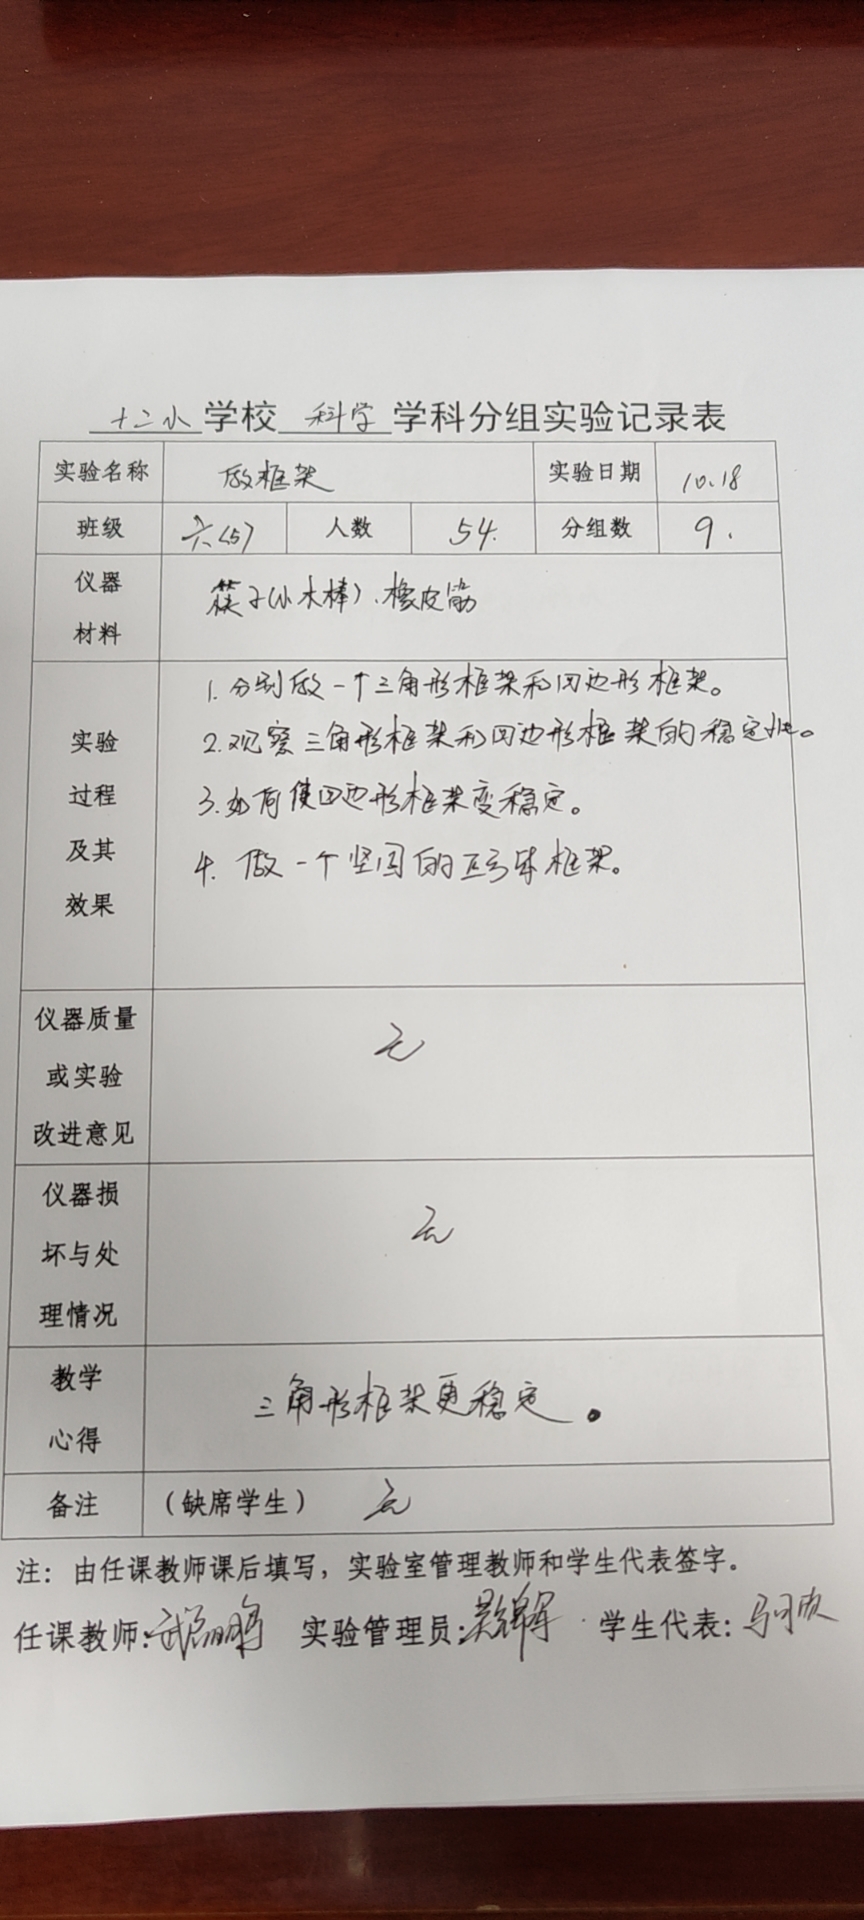 十二小学校 科学 学科分组实验记录表
实验名称 做框架 实验日期 10.18
班级 六(5) 人数 54. 分组数 9.
仪器
材料
筷子(小木棒)、橡皮筋
实验
过程
及其
效果
1. 分别做一个三角形框架和四边形框架。
2. 观察三角形框架和四边形框架的稳定性。
3. 如何使四边形框架变稳定。
4. 做一个坚固的正方体框架。
仪器质量
或实验
改进意见
无
仪器损
坏与处
理情况
无
教学
心得
三角形框架更稳定。
备注 （缺席学生） 无
注：由任课教师课后填写，实验室管理教师和学生代表签字。
任课教师: 实验管理员: 学生代表: